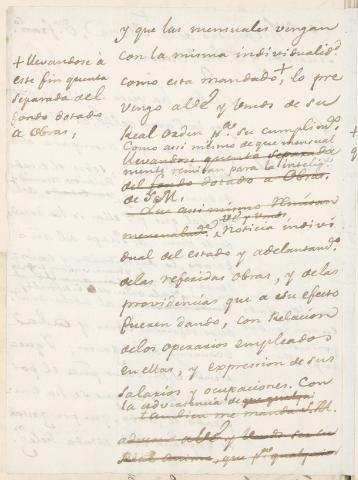 + llevandose à
este fin quenta
separada del
fondo dotado
a Obras,
y que las mensuales vengan
con la misma individualidd
como esta mandado,+ lo pre
vengo a V.E. y Vmds de su
Real Orden pa. su cumplimto.
Como asi mismo de que mensual
llevandose quenta separada
mente remitan para la inteligª
del fondo dotado a Obras,
de S.M.
Que asi mismo
mensualmte Noticia indivi
dual del estado y adelantamto.
de las referidas Obras, y de las
providencias que a este efecto
fueren dando, con Relacion
de los operarios empleados
en ellas, y expresion de sus
salarios y ocupaciones. Con
la advertencia de que qualqa
tambien me manda S.M.